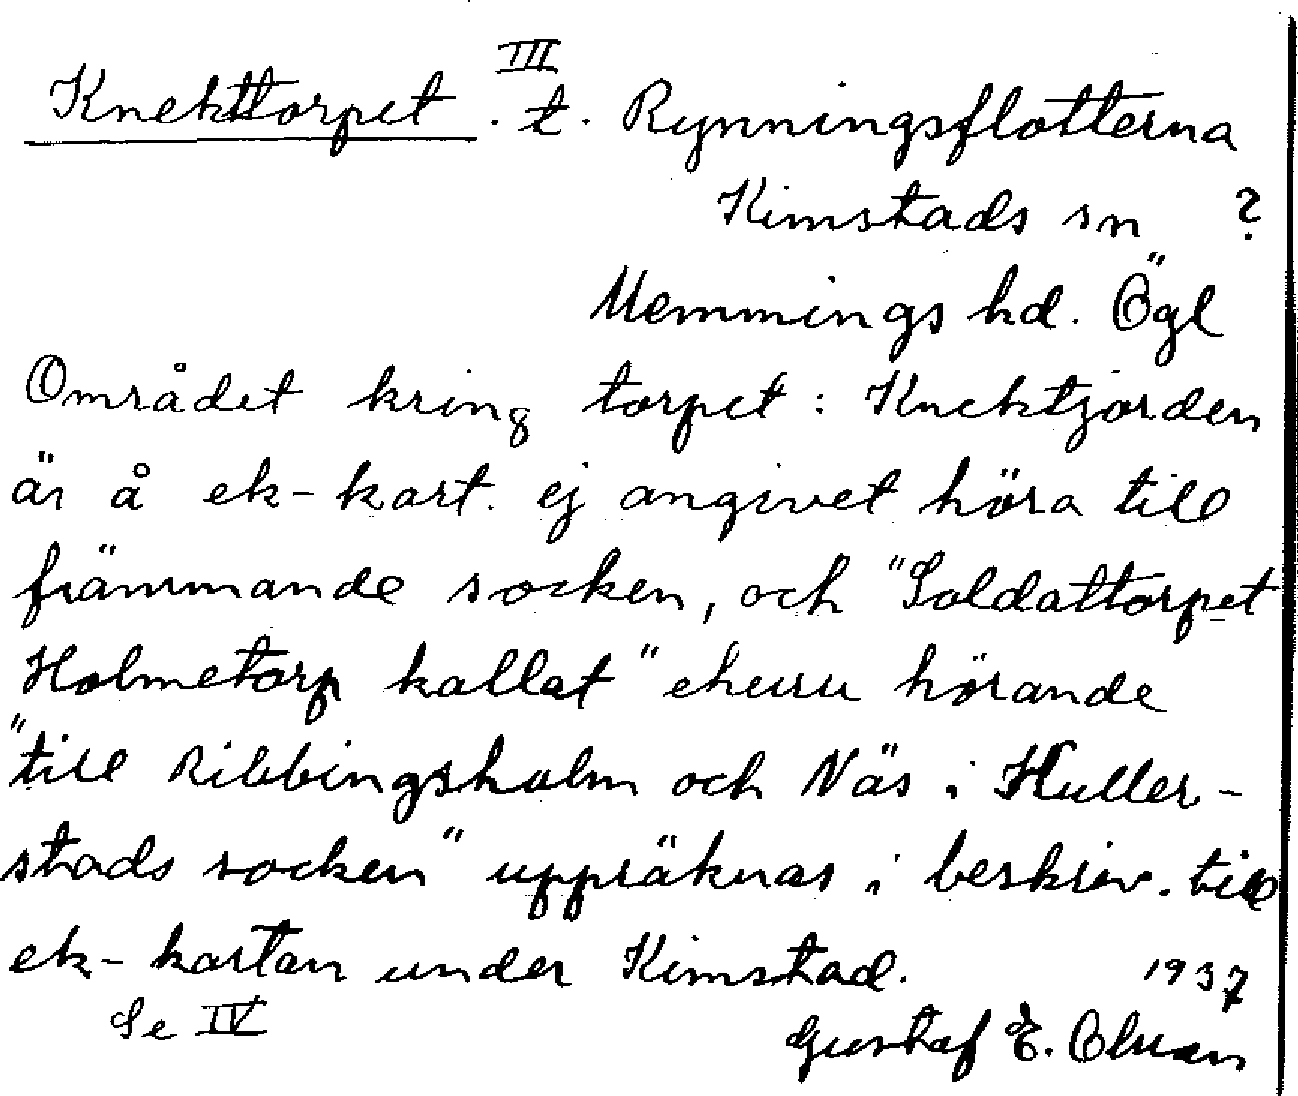 III
Knekttorpet . t. Rynningsflotterna
Kimstads sn ?
Memmings hd. Ögl
Området kring torpet : Knektjorden
är å ek-kart. ej angivet höra till
främmande socken, och "Soldattorpet
Holmetorp kallat" ehuru hörande
"till Ribbingsholm och Näs i Kuller-
stads socken" uppräknas i beskriv. till
ek-kartan under Kimstad. 1937
Se IV Gustaf E.